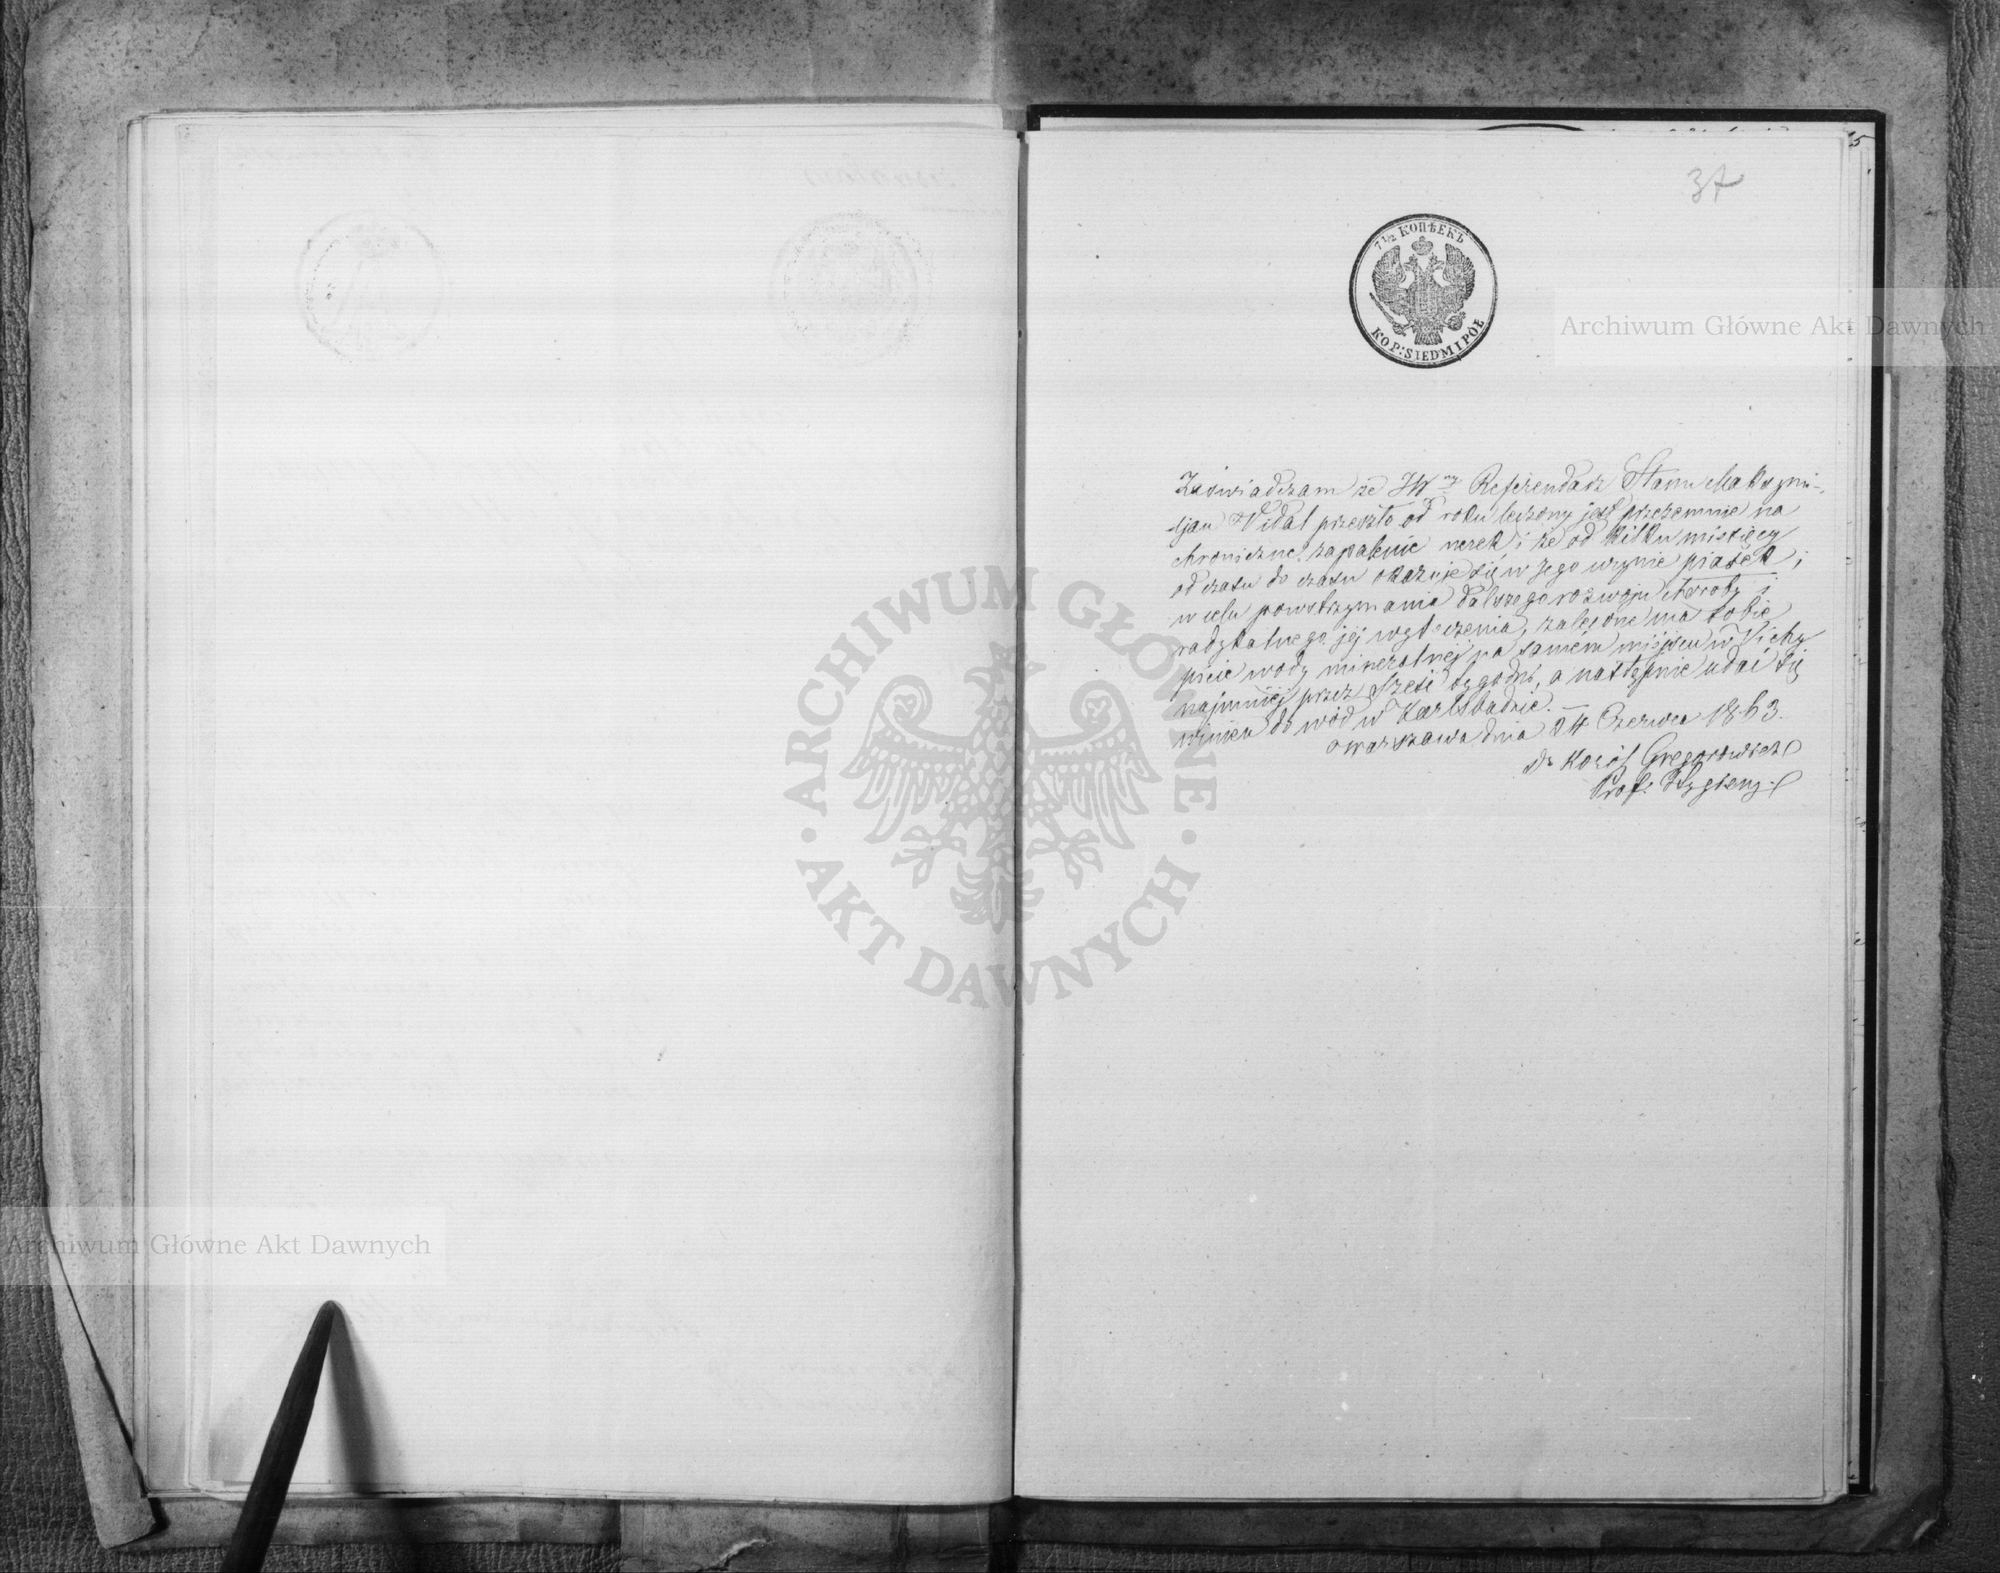 37
7 1/2 КОПѢЕКЪ
KOP: SIEDM I PÓŁ
Zaświadczam że JW ny Referendarz Stanu Maksymi-
ljan Vidal przeszło od roku leczony jest przezemnie na
chroniczne zapalenie nerek i że od kilku miesięcy
od czasu do czasu okazuje się w jego urynie piasek;
w celu powstrzymania dalszego rozwoju choroby i
radykalnego jej wyleczenia, zalecone ma sobie
picie wody mineralnej na samém miejscu w Vichy
najmniej przez sześć tygodni, a następnie udać się
winien do wód w Karlsbadzie. —
Warszawa dnia 24 Czerwca 1863.
Dr Karól Gregorowicz
Prof. Hygieny
Archiwum Główne Akt Dawnych
Archiwum Główne Akt Dawnych
ARCHIWUM GŁÓWNE
AKT DAWNYCH